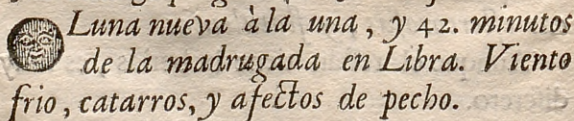 Luna nueva à la una, y 42. minutos
de la madrugada en Libra. Viento
frio, catarros, y afectos de pecho.